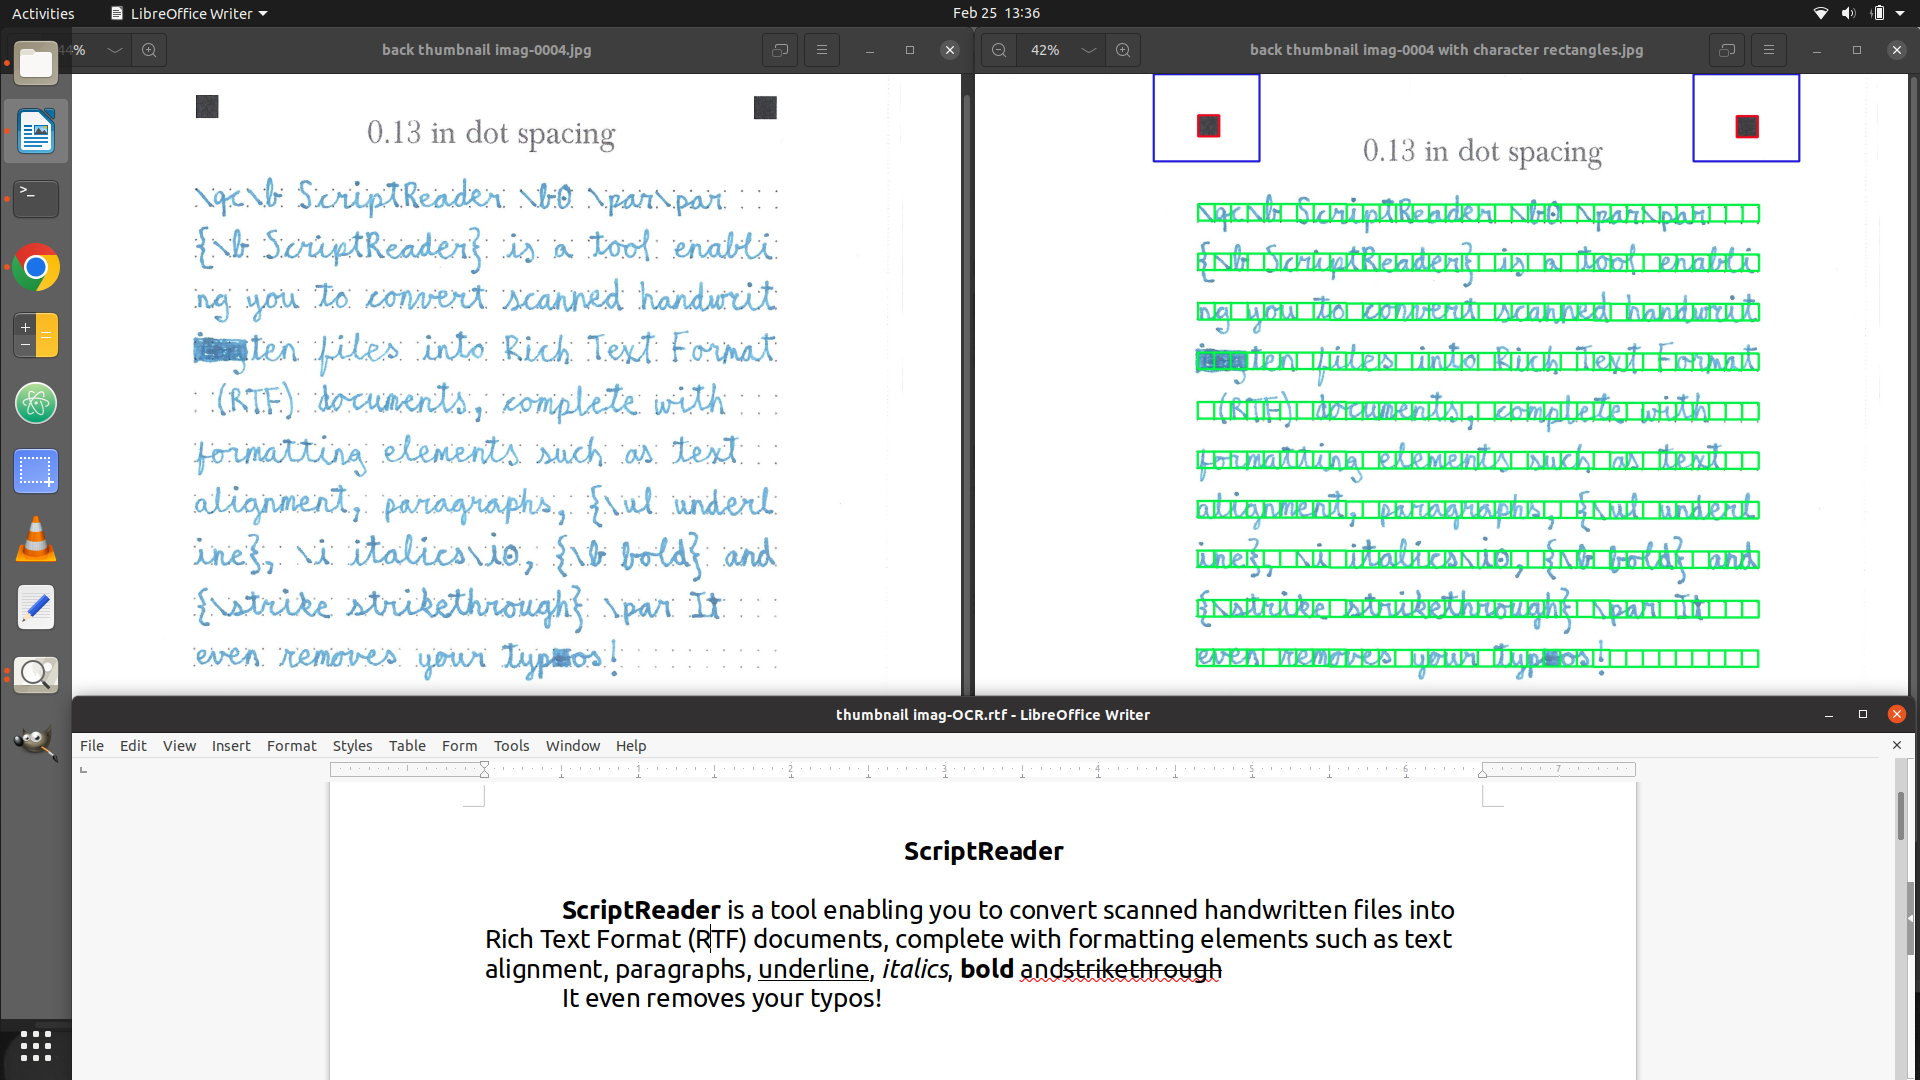 Activities LibreOffice Writer Feb 25 13:36
44% back thumbnail imag-0004.jpg
0.13 in dot spacing
\qc\b ScriptReader \b0 \par\par
{\b ScriptReader} is a tool enabli
ng you to convert scanned handwrit
ten files into Rich Text Format
(RTF) documents, complete with
formatting elements such as text
alignment, paragraphs, {\ul underl
ine}, \i italics\i0, {\b bold} and
{\strike strikethrough} \par It
even removes your typos!
42% back thumbnail imag-0004 with character rectangles.jpg
0.13 in dot spacing
\qc\b ScriptReader \b0 \par\par
{\b ScriptReader} is a tool enabli
ng you to convert scanned handwrit
ten files into Rich Text Format
(RTF) documents, complete with
formatting elements such as text
alignment, paragraphs, {\ul underl
ine}, \i italics\i0, {\b bold} and
{\strike strikethrough} \par It
even removes your typos!
thumbnail imag-OCR.rtf - LibreOffice Writer
File Edit View Insert Format Styles Table Form Tools Window Help
1 2 3 4 5 6 7
ScriptReader
ScriptReader is a tool enabling you to convert scanned handwritten files into
Rich Text Format (RTF) documents, complete with formatting elements such as text
alignment, paragraphs, underline, italics, bold andstrikethrough
It even removes your typos!